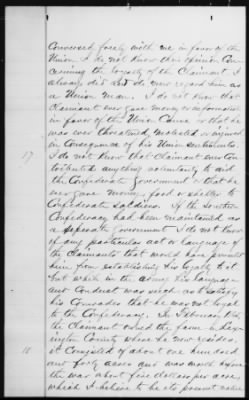 conversed freely with me in favor of the
Union. I do not know the opinion con-
cerning the loyalty of the Claimant. I
always did and do now regard him as
a Union man. I do not know that
Claimant ever gave money or information
in favor of the Union Cause or that he
was ever threatened, molested or injured
in Consequence of his Union sentiments
17 I do not know that Claimant ever con-
tributed anything voluntarily to aid
the Confederate Government or that he
ever gave money, food or shelter to
Confederate soldiers. If the Southern
Confederacy had been maintained as
a separate government I do not know
of any particular act or language of
the Claimants that would have prevented
him from establishing his loyalty to it.
But while in the army his language
and Conduct was such as to satisfy
his Comrades that he was not loyal
to the Confederacy. In February
the Claimant owned the farm in Lex-
ington County where he now resides.
18 it consisted of about one hundred
and forty acres and was worth before
the war about five dollars per acre,
which I believe to be its present value